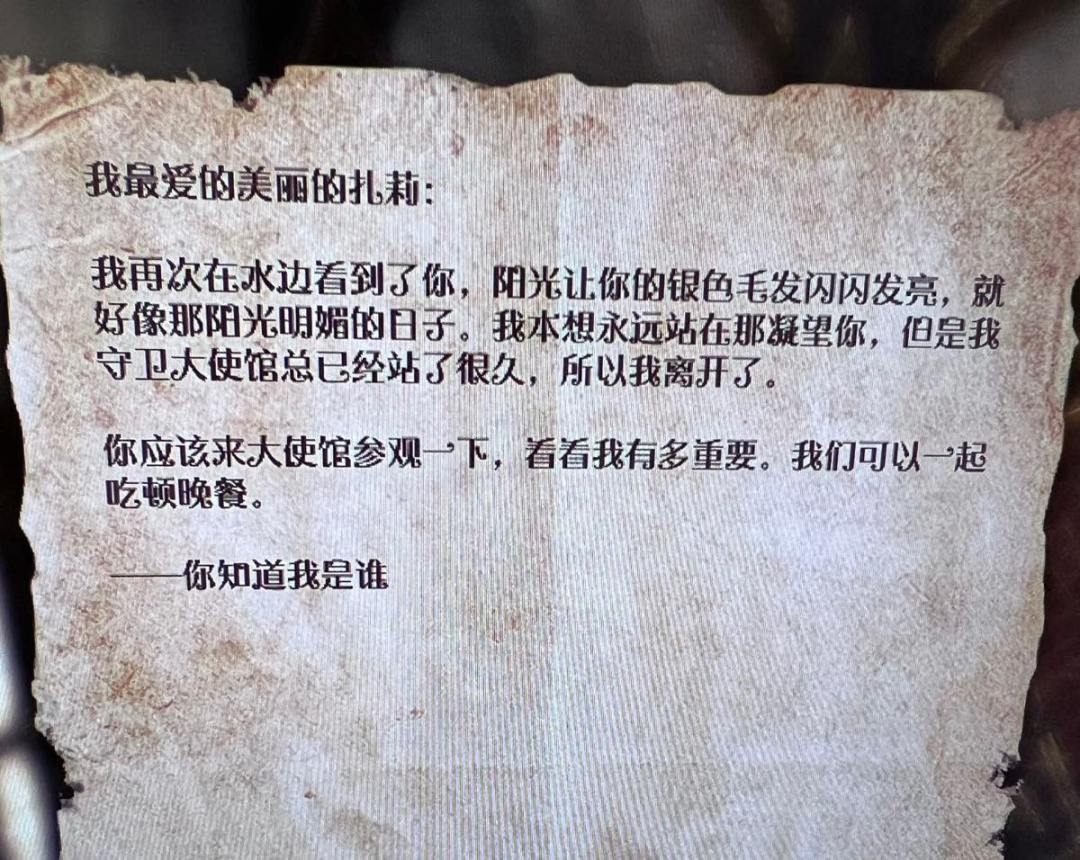 我最爱的美丽的扎莉：
我再次在水边看到了你，阳光让你的银色毛发闪闪发亮，就
好像那阳光明媚的日子。我本想永远站在那凝望你，但是我
守卫大使馆总已经站了很久，所以我离开了。
你应该来大使馆参观一下，看看我有多重要。我们可以一起
吃顿晚餐。
——你知道我是谁